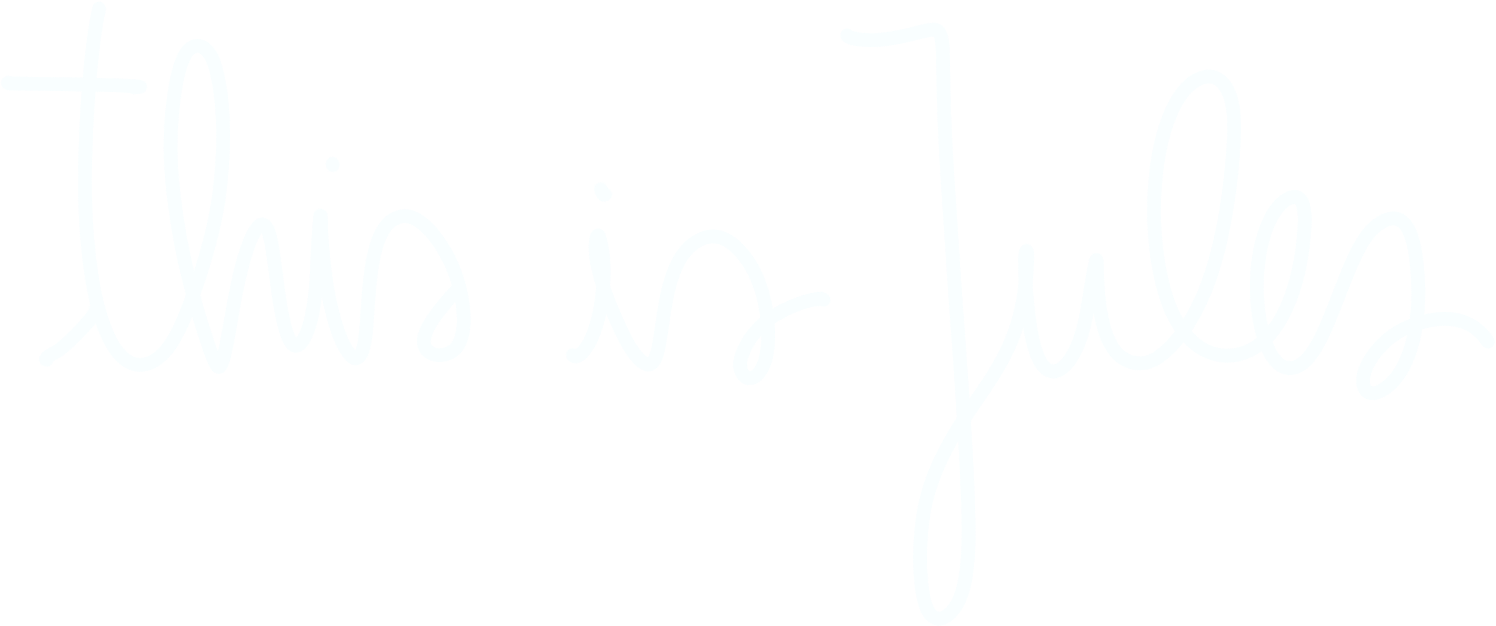 this is Jules